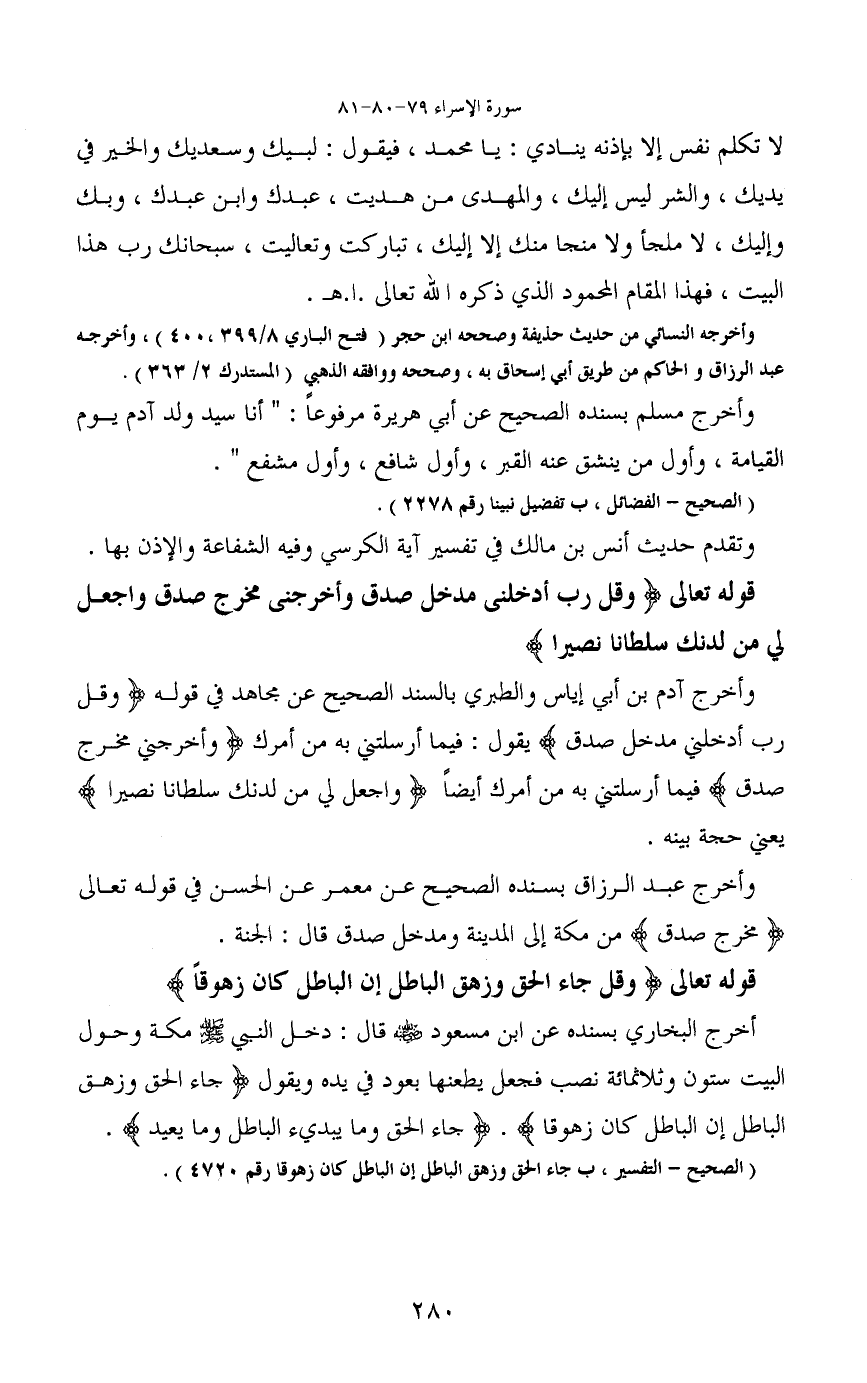 سورة الإسراء ٧٩-٨٠-٨١
لا تكلم نفس إلا بإذنه ينادي : يا محمد ، فيقول : لبيك وسعديك والخير في
يديك ، والشر ليس إليك ، والمهدى من هديت ، عبدك وابن عبدك ، وبك
وإليك ، لا ملجأ ولا منجا منك إلا إليك ، تباركت وتعاليت ، سبحانك رب هذا
البيت ، فهذا المقام المحمود الذي ذكره الله تعالى .ا.هـ .
وأخرجه النسائي من حديث حذيفة وصححه ابن حجر ( فتح الباري ٣٩٩/٨ ،٤٠٠ ) ، وأخرجه
عبد الرزاق و الحاكم من طريق أبي إسحاق به ، وصححه ووافقه الذهبي ( المستدرك ٢/ ٣٦٣ ) .
وأخرج مسلم بسنده الصحيح عن أبي هريرة مرفوعاً : " أنا سيد ولد آدم يوم
القيامة ، وأول من ينشق عنه القبر ، وأول شافع ، وأول مشفع " .
( الصحيح – الفضائل ، ب تفضيل نبينا رقم ٢٢٧٨ ) .
وتقدم حديث أنس بن مالك في تفسير آية الكرسي وفيه الشفاعة والإذن بها .
قوله تعالى ﴿ وقل رب أدخلنى مدخل صدق وأخرجنى مخرج صدق واجعل
لي من لدنك سلطانا نصيرا ﴾
وأخرج آدم بن أبي إياس والطبري بالسند الصحيح عن مجاهد في قوله ﴿ وقل
رب أدخلني مدخل صدق ﴾ يقول : فيما أرسلتني به من أمرك ﴿ وأخرجني مخرج
صدق ﴾ فيما أرسلتني به من أمرك أيضاً ﴿ واجعل لي من لدنك سلطانا نصيرا ﴾
يعني حجة بينه .
وأخرج عبد الرزاق بسنده الصحيح عن معمر عن الحسن في قوله تعالى
﴿ مخرج صدق ﴾ من مكة إلى المدينة ومدخل صدق قال : الجنة .
قوله تعالى ﴿ وقل جاء الحق وزهق الباطل إن الباطل كان زهوقاً ﴾
أخرج البخاري بسنده عن ابن مسعود ﷺ قال : دخل النبي ﷺ مكة وحول
البيت ستون وثلاثمائة نصب فجعل يطعنها بعود في يده ويقول ﴿ جاء الحق وزهق
الباطل إن الباطل كان زهوقا ﴾ . ﴿ جاء الحق وما يبديء الباطل وما يعيد ﴾ .
( الصحيح – التفسير ، ب جاء الحق وزهق الباطل إن الباطل كان زهوقا رقم ٤٧٢٠ ) .
٢٨٠